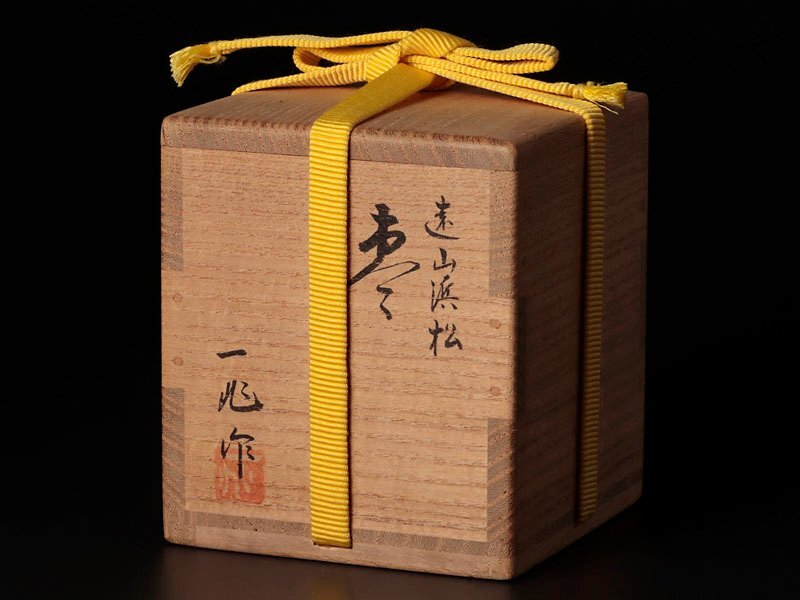 遠山浜松
棗
一兆作